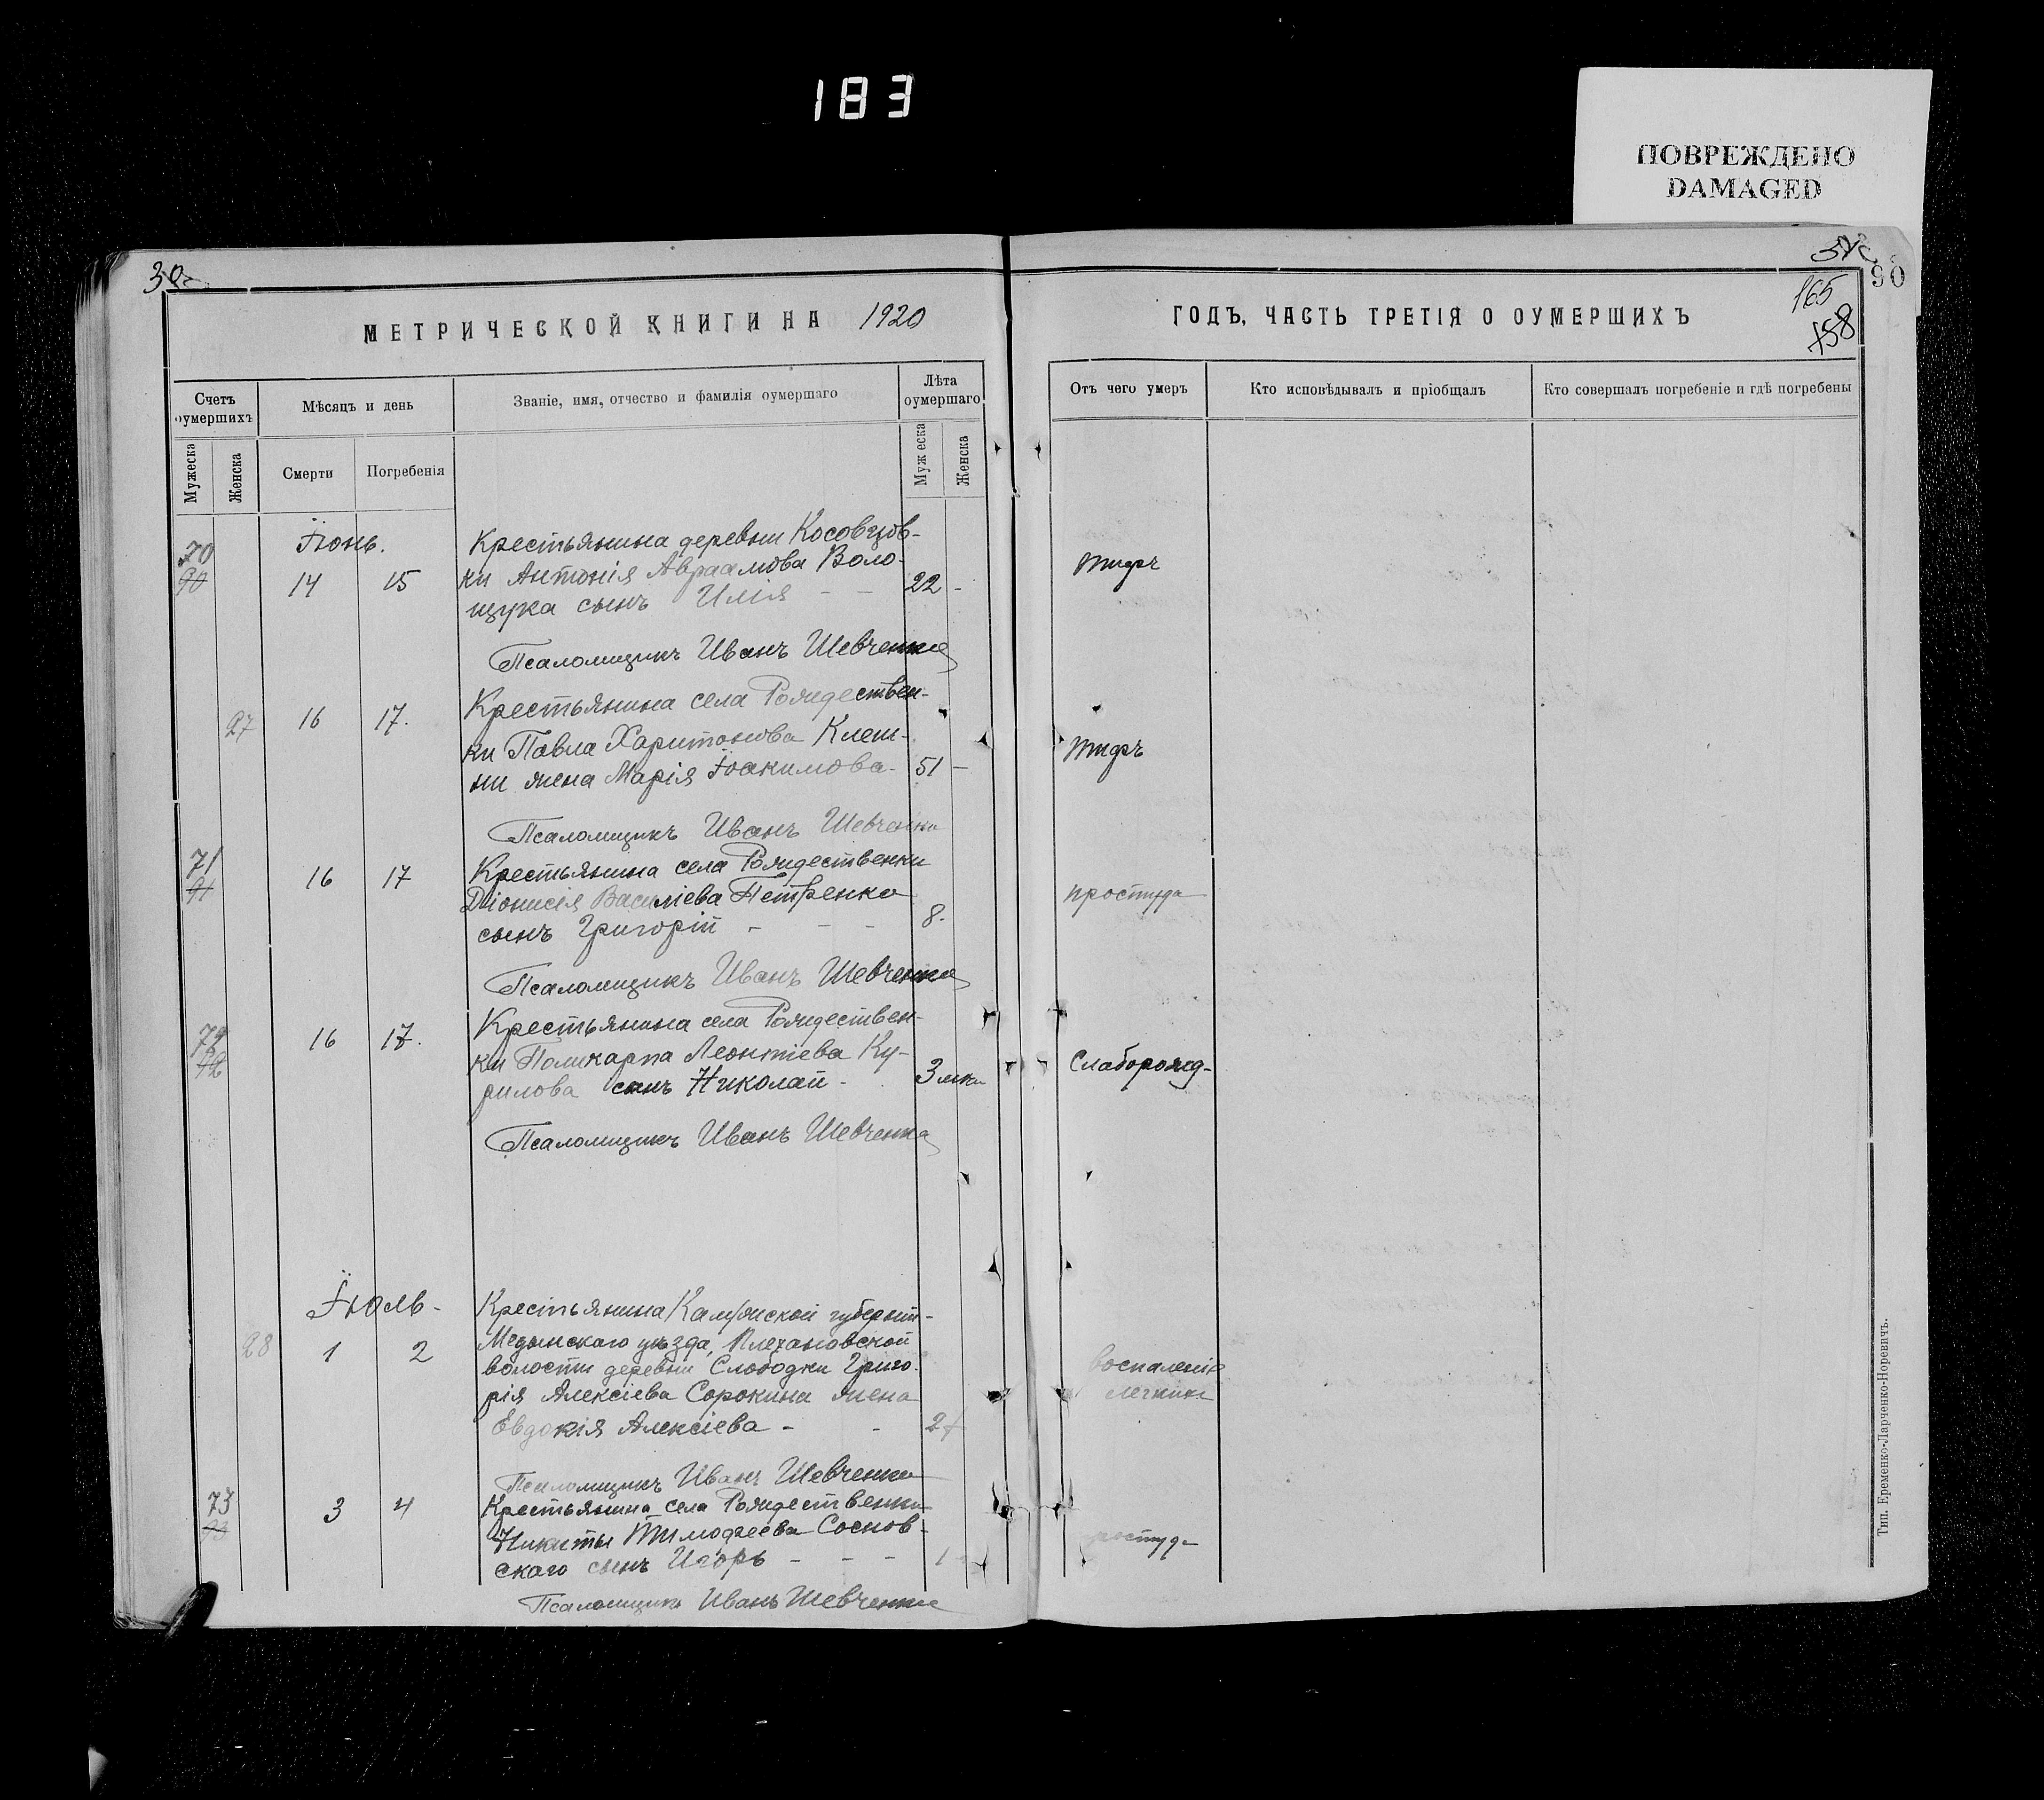 183
ПОВРЕЖДЕНО
DAMAGED
30
90
165
158
МЕТРИЧЕСКОЙ КНИГИ НА 1920
ГОДЪ, ЧАСТЬ ТРЕТІЯ О ОУМЕРШИХЪ
Счетъ оумершихъ
Мѣсяцъ и день
Званіе, имя, отчество и фамилія оумершаго
Лѣта оумершаго
Отъ чего умеръ
Кто исповѣдывалъ и пріобщалъ
Кто совершалъ погребеніе и гдѣ погребены
Мужеска
Женска
Смерти
Погребенія
Мужеска
Женска
Іюнь.
70
90
14 15
Крестьянина деревни Косовцов-
ки Антонія Авраамова Воло-
щука сынъ Илія - - 22 -
тифъ
Псаломщикъ Иванъ Шевченко
27 16 17.
Крестьянина села Рождествен-
ки Павла Харитонова Клеш-
ни жена Марія Іоакимова - 51 -
тифъ
Псаломщикъ Иванъ Шевченко
71
91
16 17
Крестьянина села Рождественки
Діонисія Василіева Петренко
сынъ Григорій - - - 8.
простуда
Псаломщикъ Иванъ Шевченко
72
92
16 17.
Крестьянина села Рождествен-
ки Поликарпа Леонтіева Ку-
рилова сынъ Николай - 3 мѣс.
Слаборожд-
Псаломщикъ Иванъ Шевченко
Іюль-
28 1 2
Крестьянина Калужской губерніи-
Медынскаго уѣзда, Плехановской
волости деревни Слободки Григо-
рія Алексіева Сорокина жена
Евдокія Алексіева - - 27
воспаленіе
легкихъ
Псаломщикъ Иванъ Шевченко
73
93
3 4
Крестьянина села Рождественки
Никиты Тимофеева Соснов-
скаго сынъ Игорь - - - 1
простуда
Псаломщикъ Иванъ Шевченко
Тип. Еременко-Ларченко-Норевичъ.